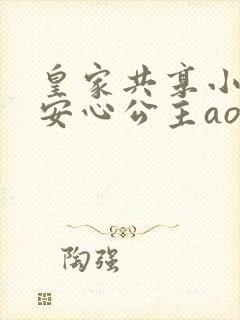 皇家共享小
安心公主ao
陶强